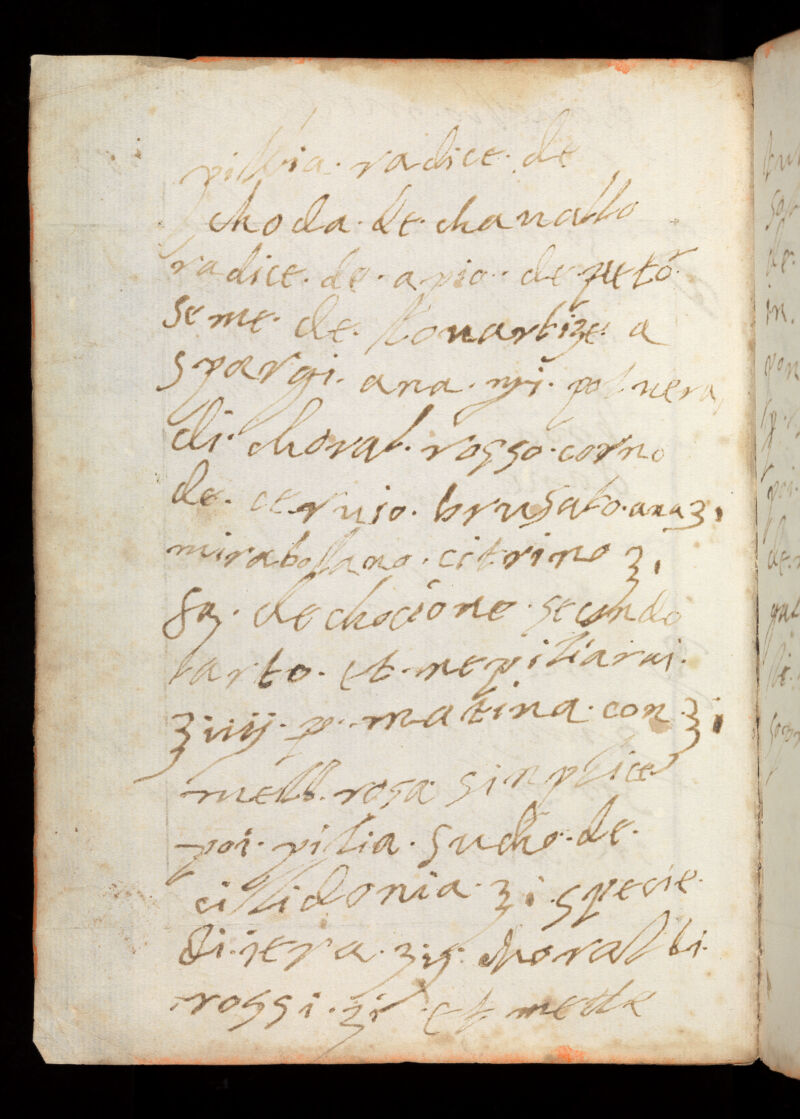 pillia · radice · de
choda · de · chavallo
radice · de · apio · de
seme · de · a
spargi · ana · polvera
di · choral · rosso · corno
de · cervio · brusato · ana ʒ i
mirabolano · citrino ʒ i
dechocione · secundo
larto · et · ne piliarai ·
ʒ iiij · p · matina · con ʒ i
mell · rosa sinplice
poi · pilia · sucho · de ·
cillidonia · ʒ i · specie ·
di · iera · choralli ·
rossi · ʒ i · et mette